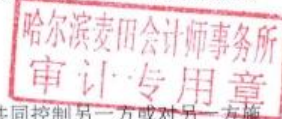 哈尔滨麦田会计师事务所
审计专用章
共同控制另一方或对另一方施